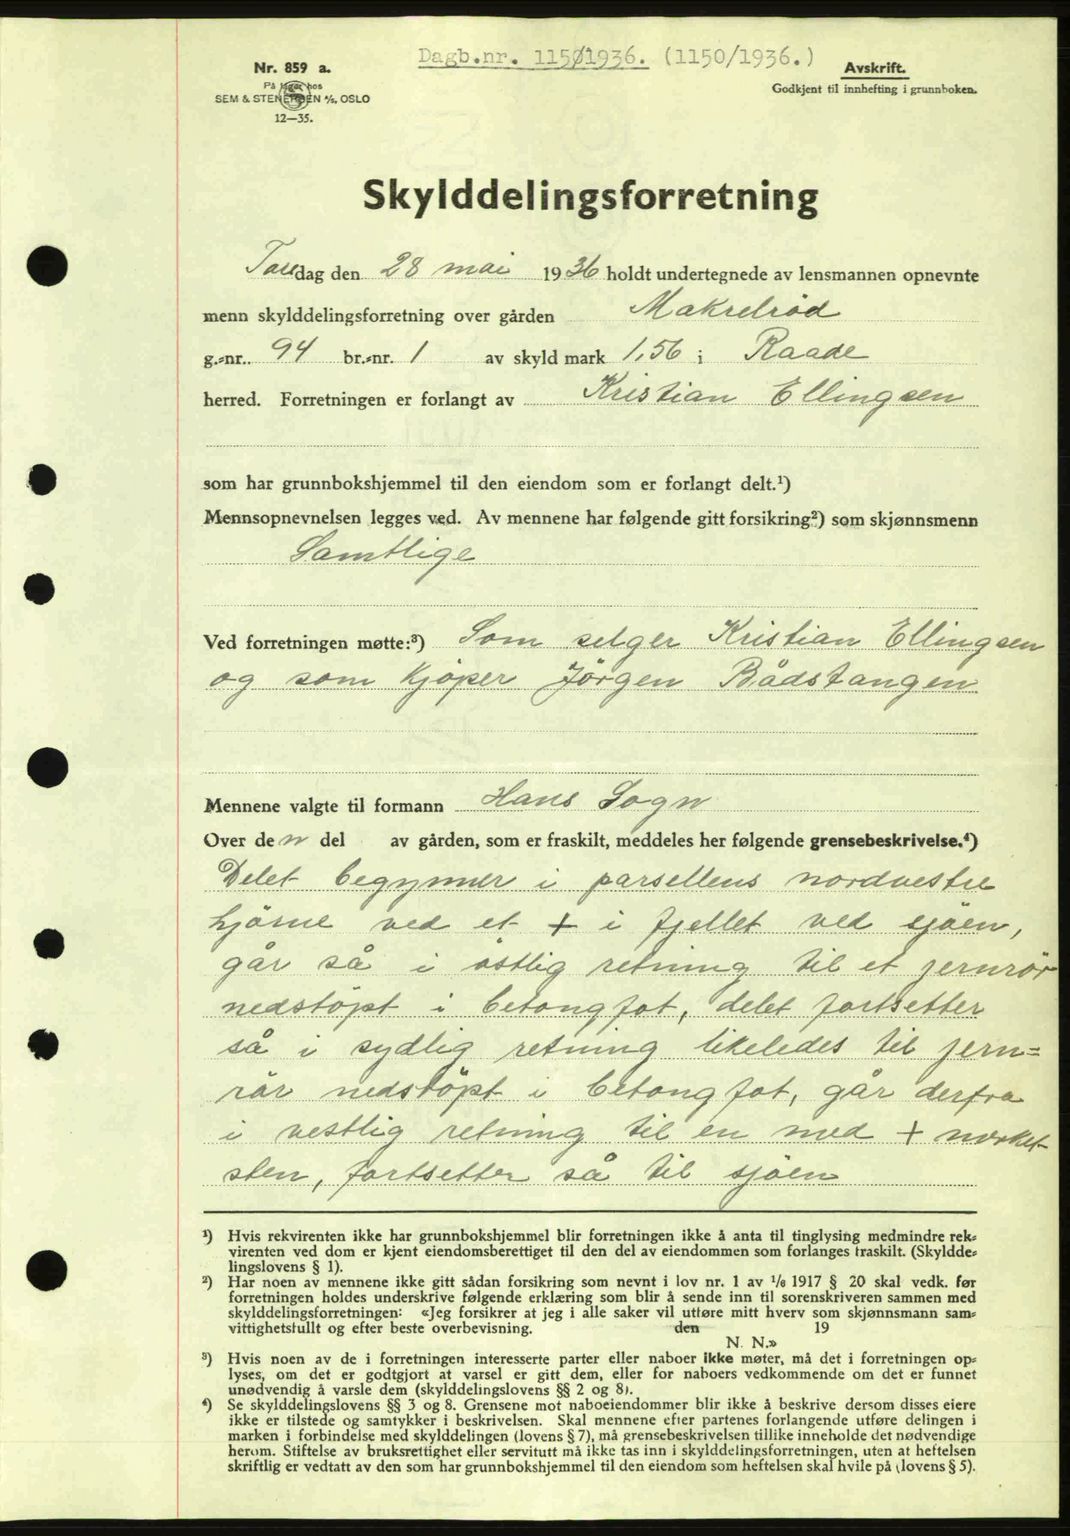 Dagb.nr. 1150/1936. (1150/1936.)
Nr. 859 a.
På lager hos
SEM & STENERSEN A/S, OSLO
12—35.
Avskrift.
Godkjent til innhefting i grunnboken.
Skylddelingsforretning
Torsdag den 28 mai 1936 holdt undertegnede av lensmannen opnevnte
menn skylddelingsforretning over gården Makrelrød
g.-nr. 94 br.-nr. 1 av skyld mark 1,56 i Raade
herred. Forretningen er forlangt av Kristian Ellingsen
som har grunnbokshjemmel til den eiendom som er forlangt delt.¹)
Mennsopnevnelsen legges ved. Av mennene har følgende gitt forsikring²) som skjønnsmenn
Samtlige
Ved forretningen møtte:³) Som selger Kristian Ellingsen
og som kjöper Jörgen Bådstangen
Mennene valgte til formann Hans Sogn
Over den del av gården, som er fraskilt, meddeles her følgende grensebeskrivelse.⁴)
Delet begynner i parsellens nordvestre
hjörne ved et + i fjellet ved sjöen,
går så i östlig retning til et jernrör
nedstöpt i betongfot, delet fortsetter
så i sydlig retning likeledes til jern=
rör nedstöpt i betongfot, går derfra
i vestlig retning til en med + merket
sten, fortsetter så til sjöen
¹) Hvis rekvirenten ikke har grunnbokshjemmel blir forretningen ikke å anta til tinglysing medmindre rek-
virenten ved dom er kjent eiendomsberettiget til den del av eiendommen som forlanges fraskilt. (Skyldde-
lingslovens § 1).
²) Har noen av mennene ikke gitt sådan forsikring som nevnt i lov nr. 1 av 1/6 1917 § 20 skal vedk. før
forretningen holdes underskrive følgende erklæring som blir å sende inn til sorenskriveren sammen med
skylddelingsforretningen: «Jeg forsikrer at jeg i alle saker vil utføre mitt hverv som skjønnsmann sam-
vittighetsfullt og efter beste overbevisning. den 19
N. N.»
³) Hvis noen av de i forretningen interesserte parter eller naboer ikke møter, må det i forretningen op-
lyses, om det er godtgjort at varsel er gitt dem, eller for naboers vedkommende om det er funnet
unødvendig å varsle dem (skylddelingslovens §§ 2 og 8).
⁴) Se skylddelingslovens §§ 3 og 8. Grensene mot naboeiendommer blir ikke å beskrive dersom disses eiere
ikke er tilstede og samtykker i beskrivelsen. Skal mennene efter partenes forlangende utføre delingen i
marken i forbindelse med skylddelingen (lovens § 7), må grensebeskrivelsen tillike inneholde det nødvendige
herom. Stiftelse av bruksrettighet eller servitutt må ikke tas inn i skylddelingsforretningen, uten at heftelsen
skriftlig er vedtatt av den som har grunnbokshjemmel til den eiendom som heftelsen skal hvile på (lovens § 5).